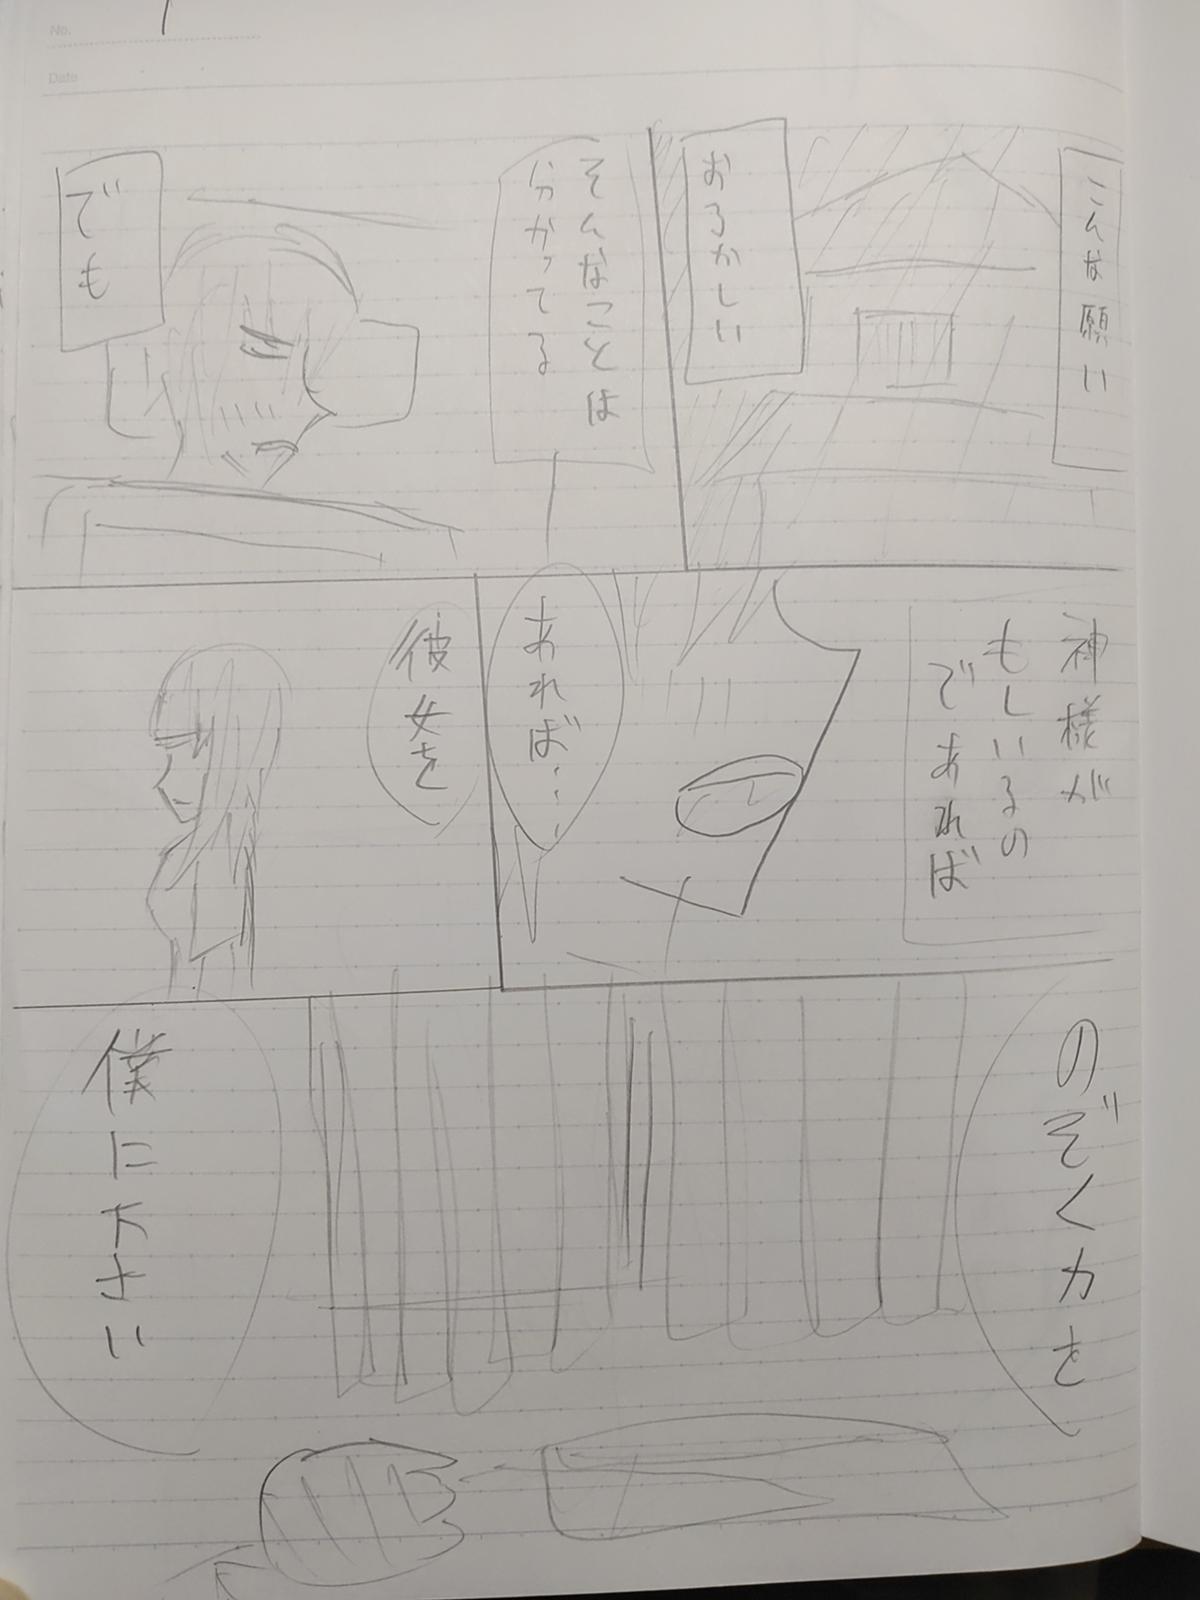 No. 1
Date
こんな願い
おろかしい
そんなことは
分かってる
でも
神様が
もしいるの
であれば
あれば…
彼女を
のぞく力を
僕に下さい